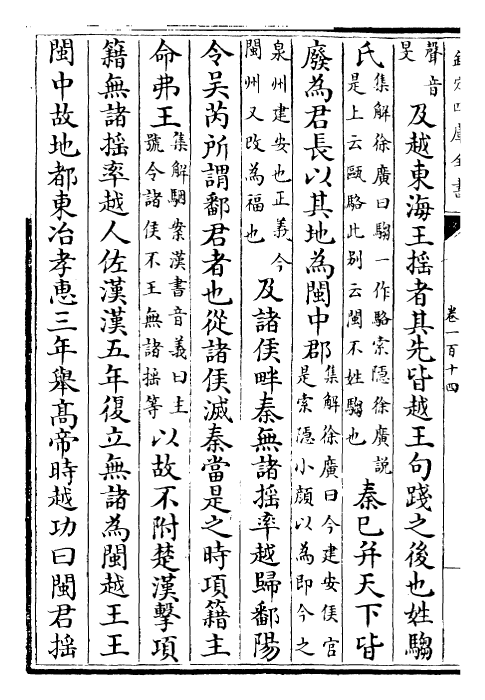 欽定四庫全書
卷一百十四
聲音
旻
及越東海王揺者其先皆越王句踐之後也姓騶
氏
集解徐廣曰騶一作駱索隠徐廣說
是上云甌駱此别云閩不姓騶也
秦已并天下皆
廢為君長以其地為閩中郡
集解徐廣曰今建安侯官
是索隠小顔以為即今之
泉州建安也正義今
閩州又改為福也
及諸侯畔秦無諸揺率越歸鄱陽
令吴芮所謂鄱君者也從諸侯滅秦當是之時項籍主
命弗王
集解駰案漢書音義曰主
號令諸侯不王無諸揺等
以故不附楚漢擊項
籍無諸揺率越人佐漢漢五年復立無諸為閩越王王
閩中故地都東冶孝恵三年舉髙帝時越功曰閩君揺